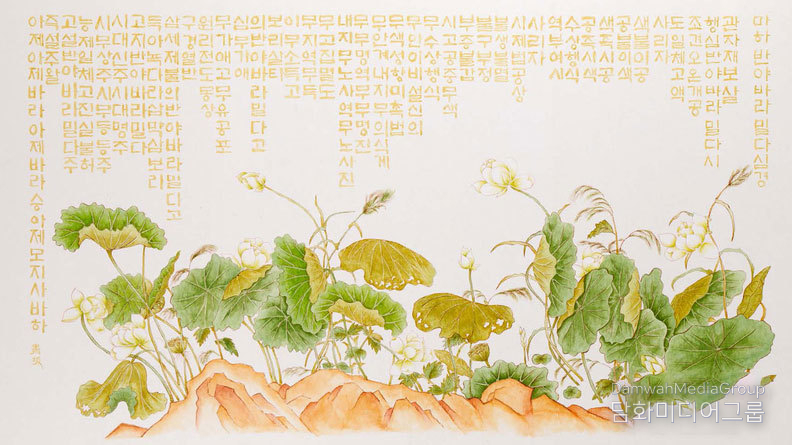 마하반야바라밀다심경
관자재보살
행심반야바라밀다시
조견오온개공
도일체고액
사리자
색불이공
공불이색
색즉시공
공즉시색
수상행식
역부여시
사리자
시제법공상
불생불멸
불구부정
부증불감
시고공중무색
무수상행식
무안이비설신의
무색성향미촉법
무안계내지무의식계
무무명역무무명진
내지무노사역무노사진
무고집멸도
무지역무득
이무소득고
보리살타
의반야바라밀다고
심무가애
무가애고무유공포
원리전도몽상
구경열반
삼세제불의반야바라밀다고
득아녹다라삼막삼보리
고지반야바라밀다
시대신주시대명주
시무상주시무등등주
능제일체고진실불허
고설반야바라밀다주
즉설주왈
아제아제바라아제바라승아제모지사바하
DamwanMediaGroup
담화미디어그룹